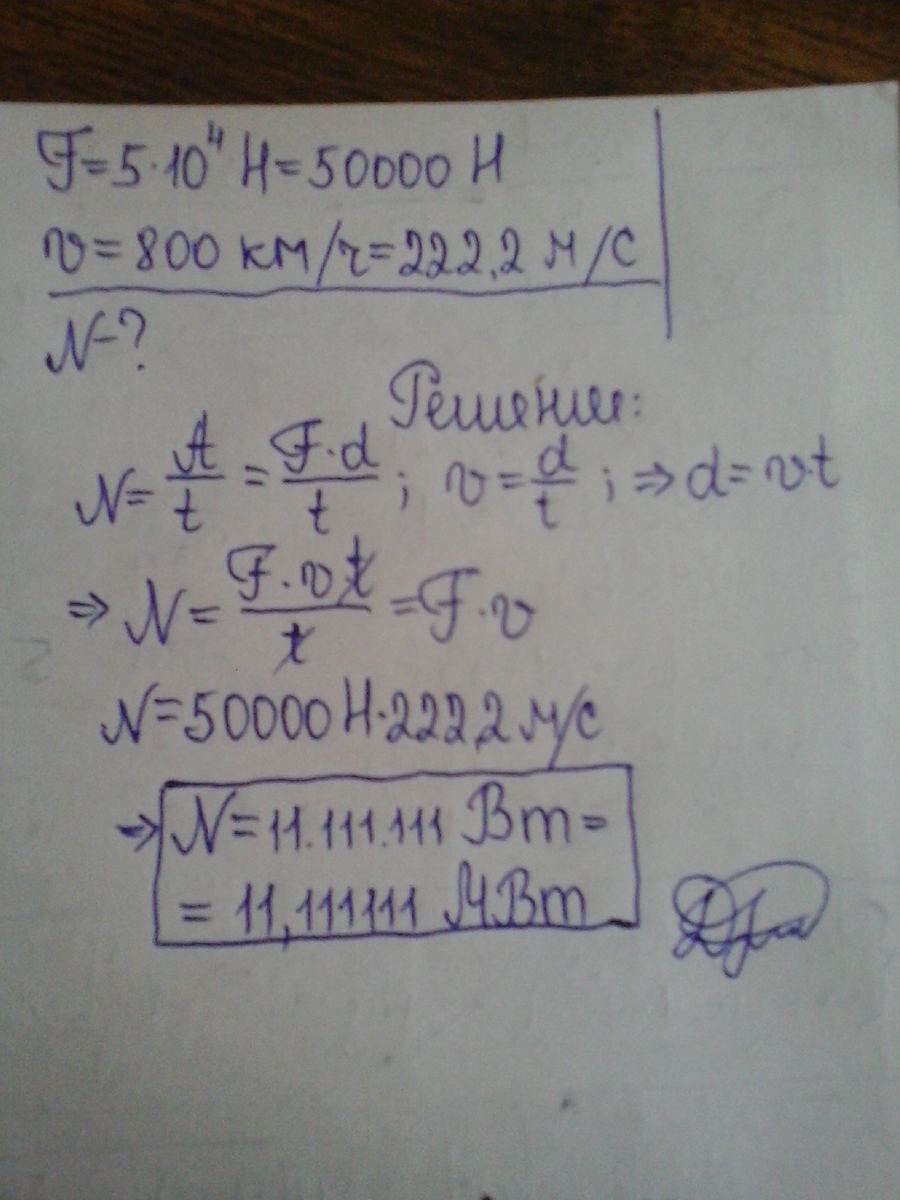 F=5·10⁴ Н=50000 Н
v=800 км/г=222,2 м/с
N-?
Решение:
N=A/t=F·d/t; v=d/t; ⇒d=vt
⇒ N=F·vt/t=F·v
N=50000Н·222,2 м/с
⇒ N=11.111.111 Вт=
= 11,111111 МВт